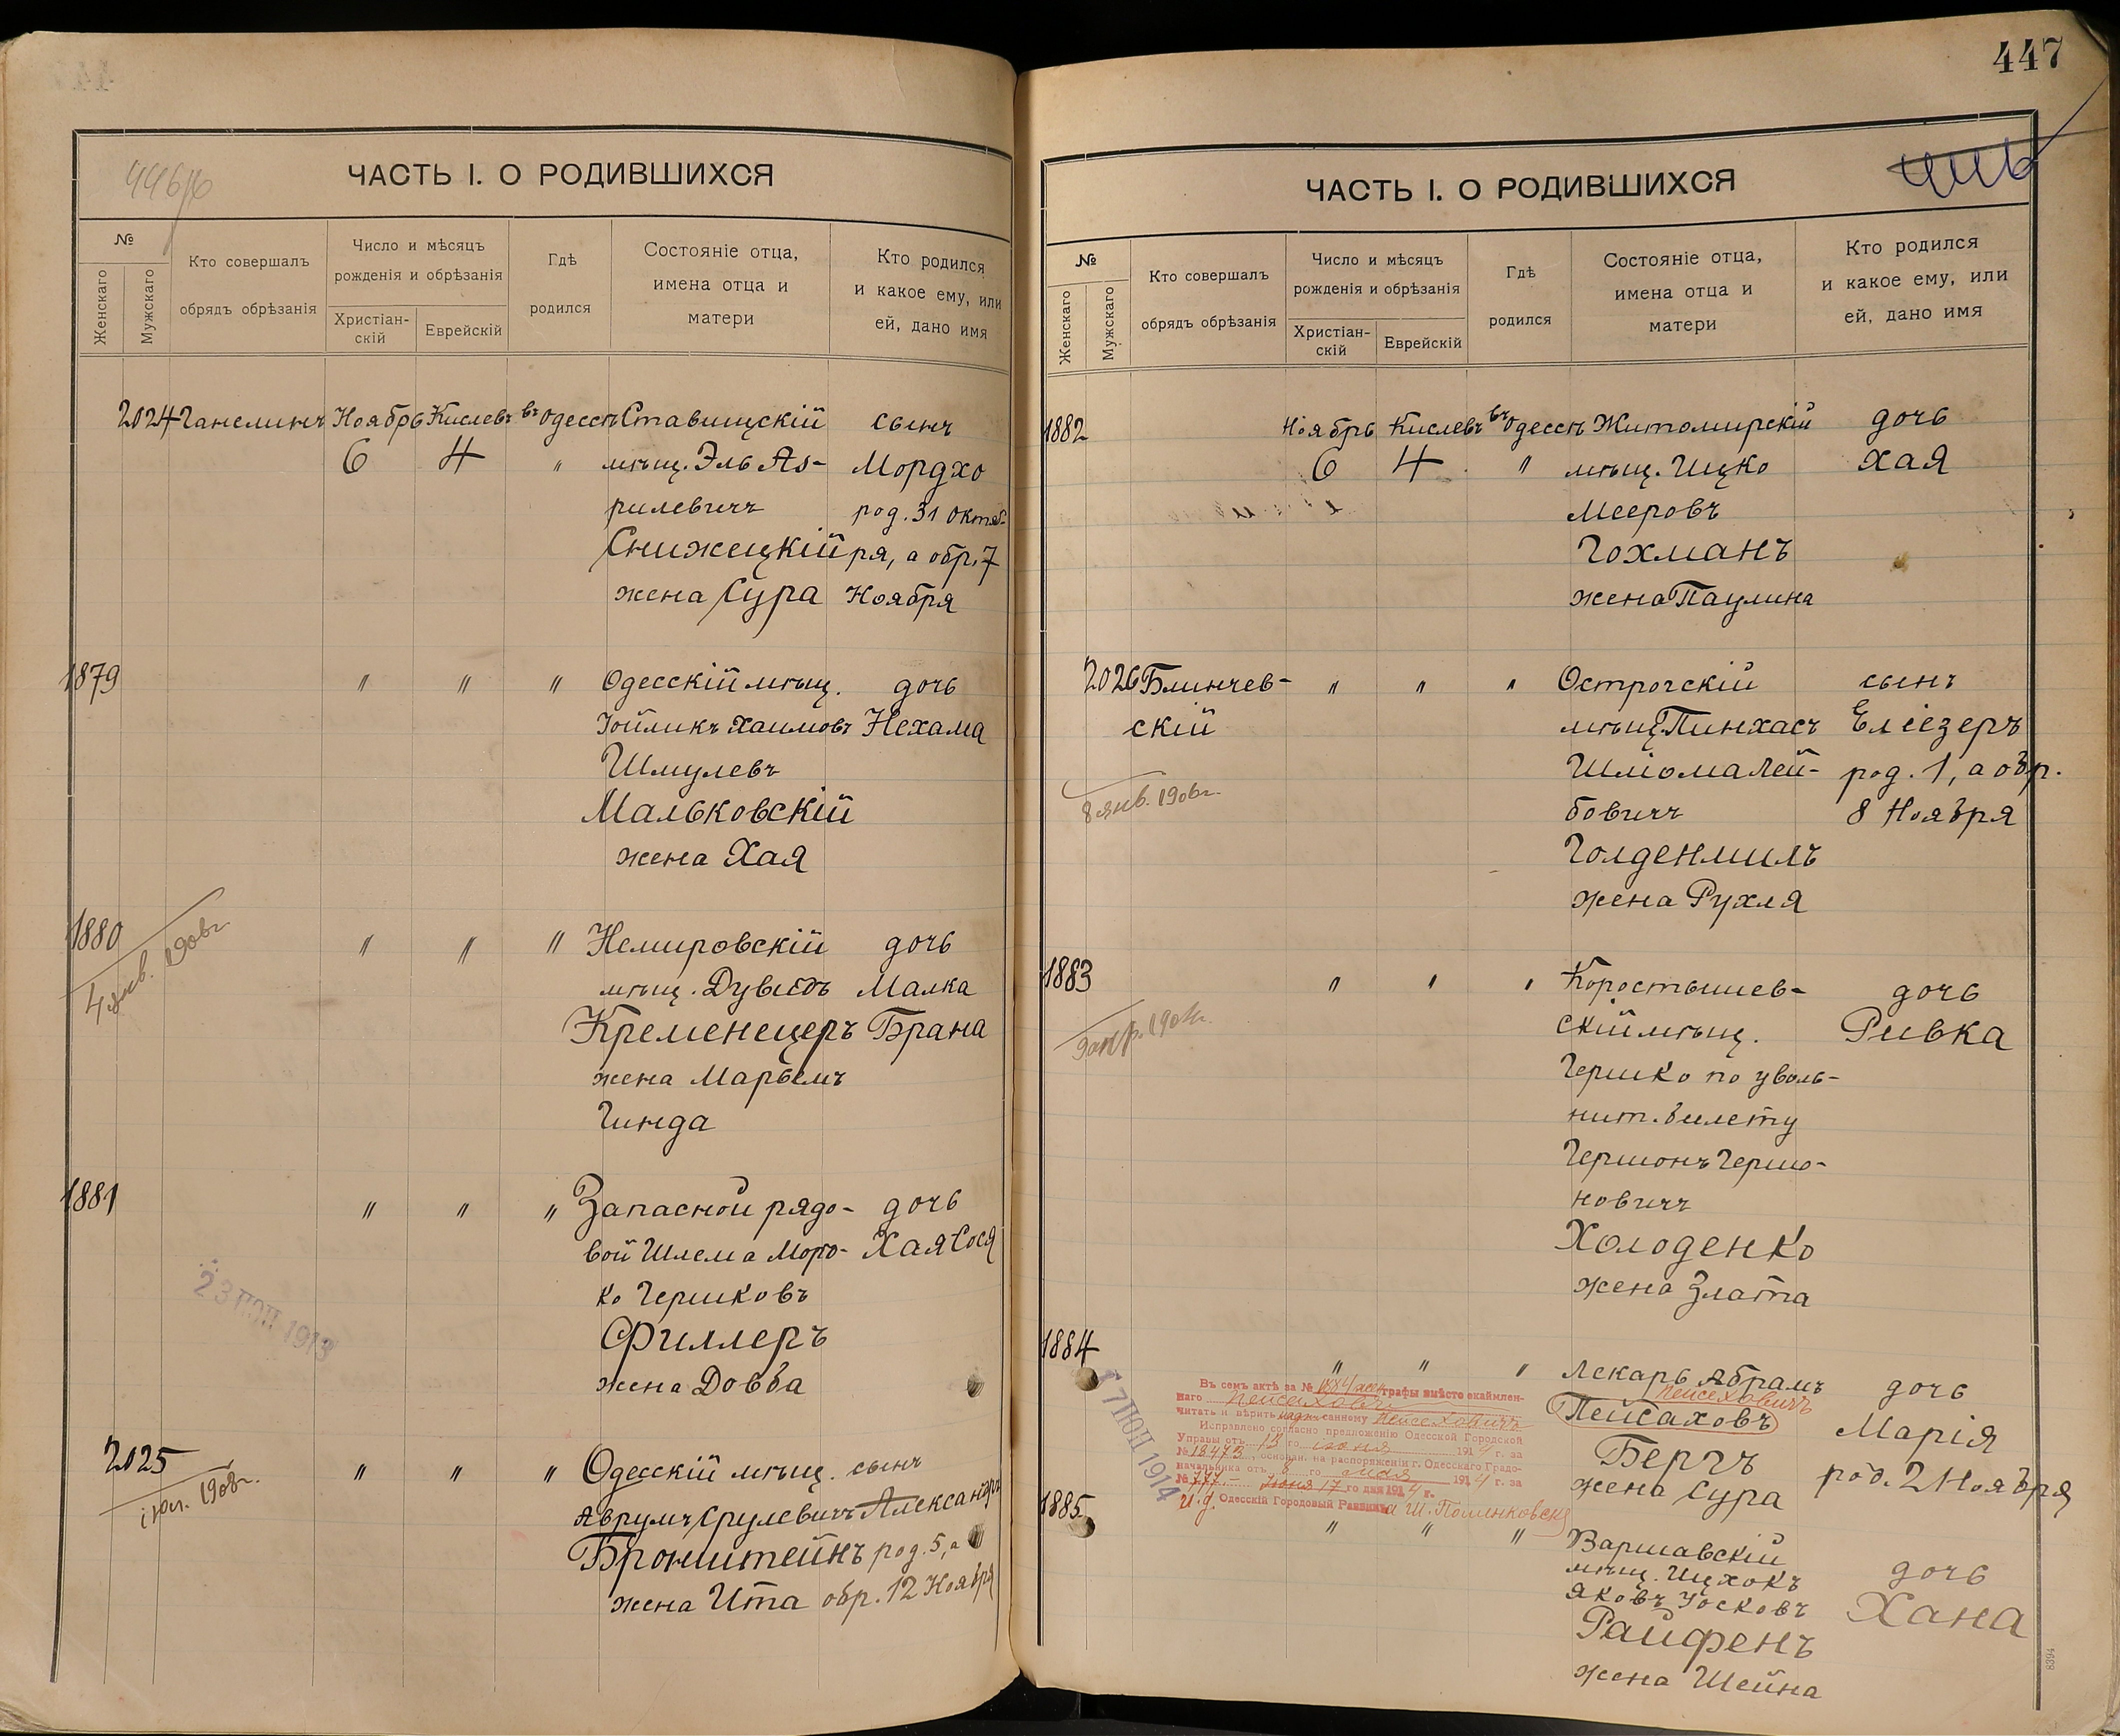 446/б
ЧАСТЬ I. О РОДИВШИХСЯ
№
Женскаго
Мужскаго
Кто совершалъ
обрядъ обрѣзанія
Число и мѣсяцъ
рожденія и обрѣзанія
Христіан-
скій
Еврейскій
Гдѣ
родился
Состояніе отца,
имена отца и
матери
Кто родился
и какое ему, или
ей, дано имя
2024 Ганелинъ Ноябрь Кислевъ въ Одессѣ Ставищскій сынъ
6 4 " мѣщ. Эль Аз- Мордхо
рилевичъ род. 31 Октяб-
Снижецкій ря, а обр. 7
жена Сура Ноября
1879 " " " Одесскій мѣщ. дочь
Іойликъ Хаимовъ Нехама
Шмулевъ
Мальковскій
жена Хая
1880 " " " Немировскій дочь
4 янв. 1906г.
мѣщ. Дувидъ Малка
Кременецеръ Брана
жена Марьемъ
Гинда
1881 " " " Запасной рядо- дочь
вой ШлемаМоро- Хая Сося
ко Гершковъ
Филлеръ
жена Довба
23 ІЮН 1913
2025 " " " Одесскій мѣщ. сынъ
Аврумъ Срулевичъ Александръ
Бронштейнъ род. 5, а
жена Ита обр. 12 Ноября
447
ЧАСТЬ I. О РОДИВШИХСЯ
№
Женскаго
Мужскаго
Кто совершалъ
обрядъ обрѣзанія
Число и мѣсяцъ
рожденія и обрѣзанія
Христіан-
скій
Еврейскій
Гдѣ
родился
Состояніе отца,
имена отца и
матери
Кто родился
и какое ему, или
ей, дано имя
1882 Ноябрь Кислевъ въ Одессѣ Житомирскій дочь
6 4 " мѣщ. Ицко Хая
Мееровъ
Гохманъ
жена Паулина
2026 Блинчев- " " " Острогскій сынъ
скій мѣщ. Пинхасъ Еліезеръ
8 янв. 1906г.
Шліомалей- род. 1, а обр.
бовичъ 8 Ноября
Голденмиль
жена Рухля
1883 " " " Коростышев- дочь
скій мѣщ. Ривка
Гершко по уволь-
нит. билету
Гершонъ Гершо-
новичъ
Холоденко
жена Злата
1884 " " " Лекарь Абрамъ дочь
Пейсеховичъ
Пейсаховъ Марія
Бергъ род. 2 Ноября
жена Сура
17 ІЮН 1914
Въ семъ актѣ за № 1884 жен графы вмѣсто окаймлен-
наго Пейсаховъ
читать и вѣрить надписанному Пейсеховичъ
Исправлено согласно предложенію Одесской Городской
Управы отъ 13 го іюня 1914 г. за
№ 18473, основан. на распоряженіи г. Одесскаго Градо-
начальника отъ 8 го мая 1914 г. за
№ 777. Іюня 17 го дня 1914 г.
И. д. Одесскій Городовый Раввинъ
1885 " " " Варшавскій дочь
мѣщ. Ицхокъ Хана
Яковъ Іосковъ
Райфенъ
жена Шейна
8394